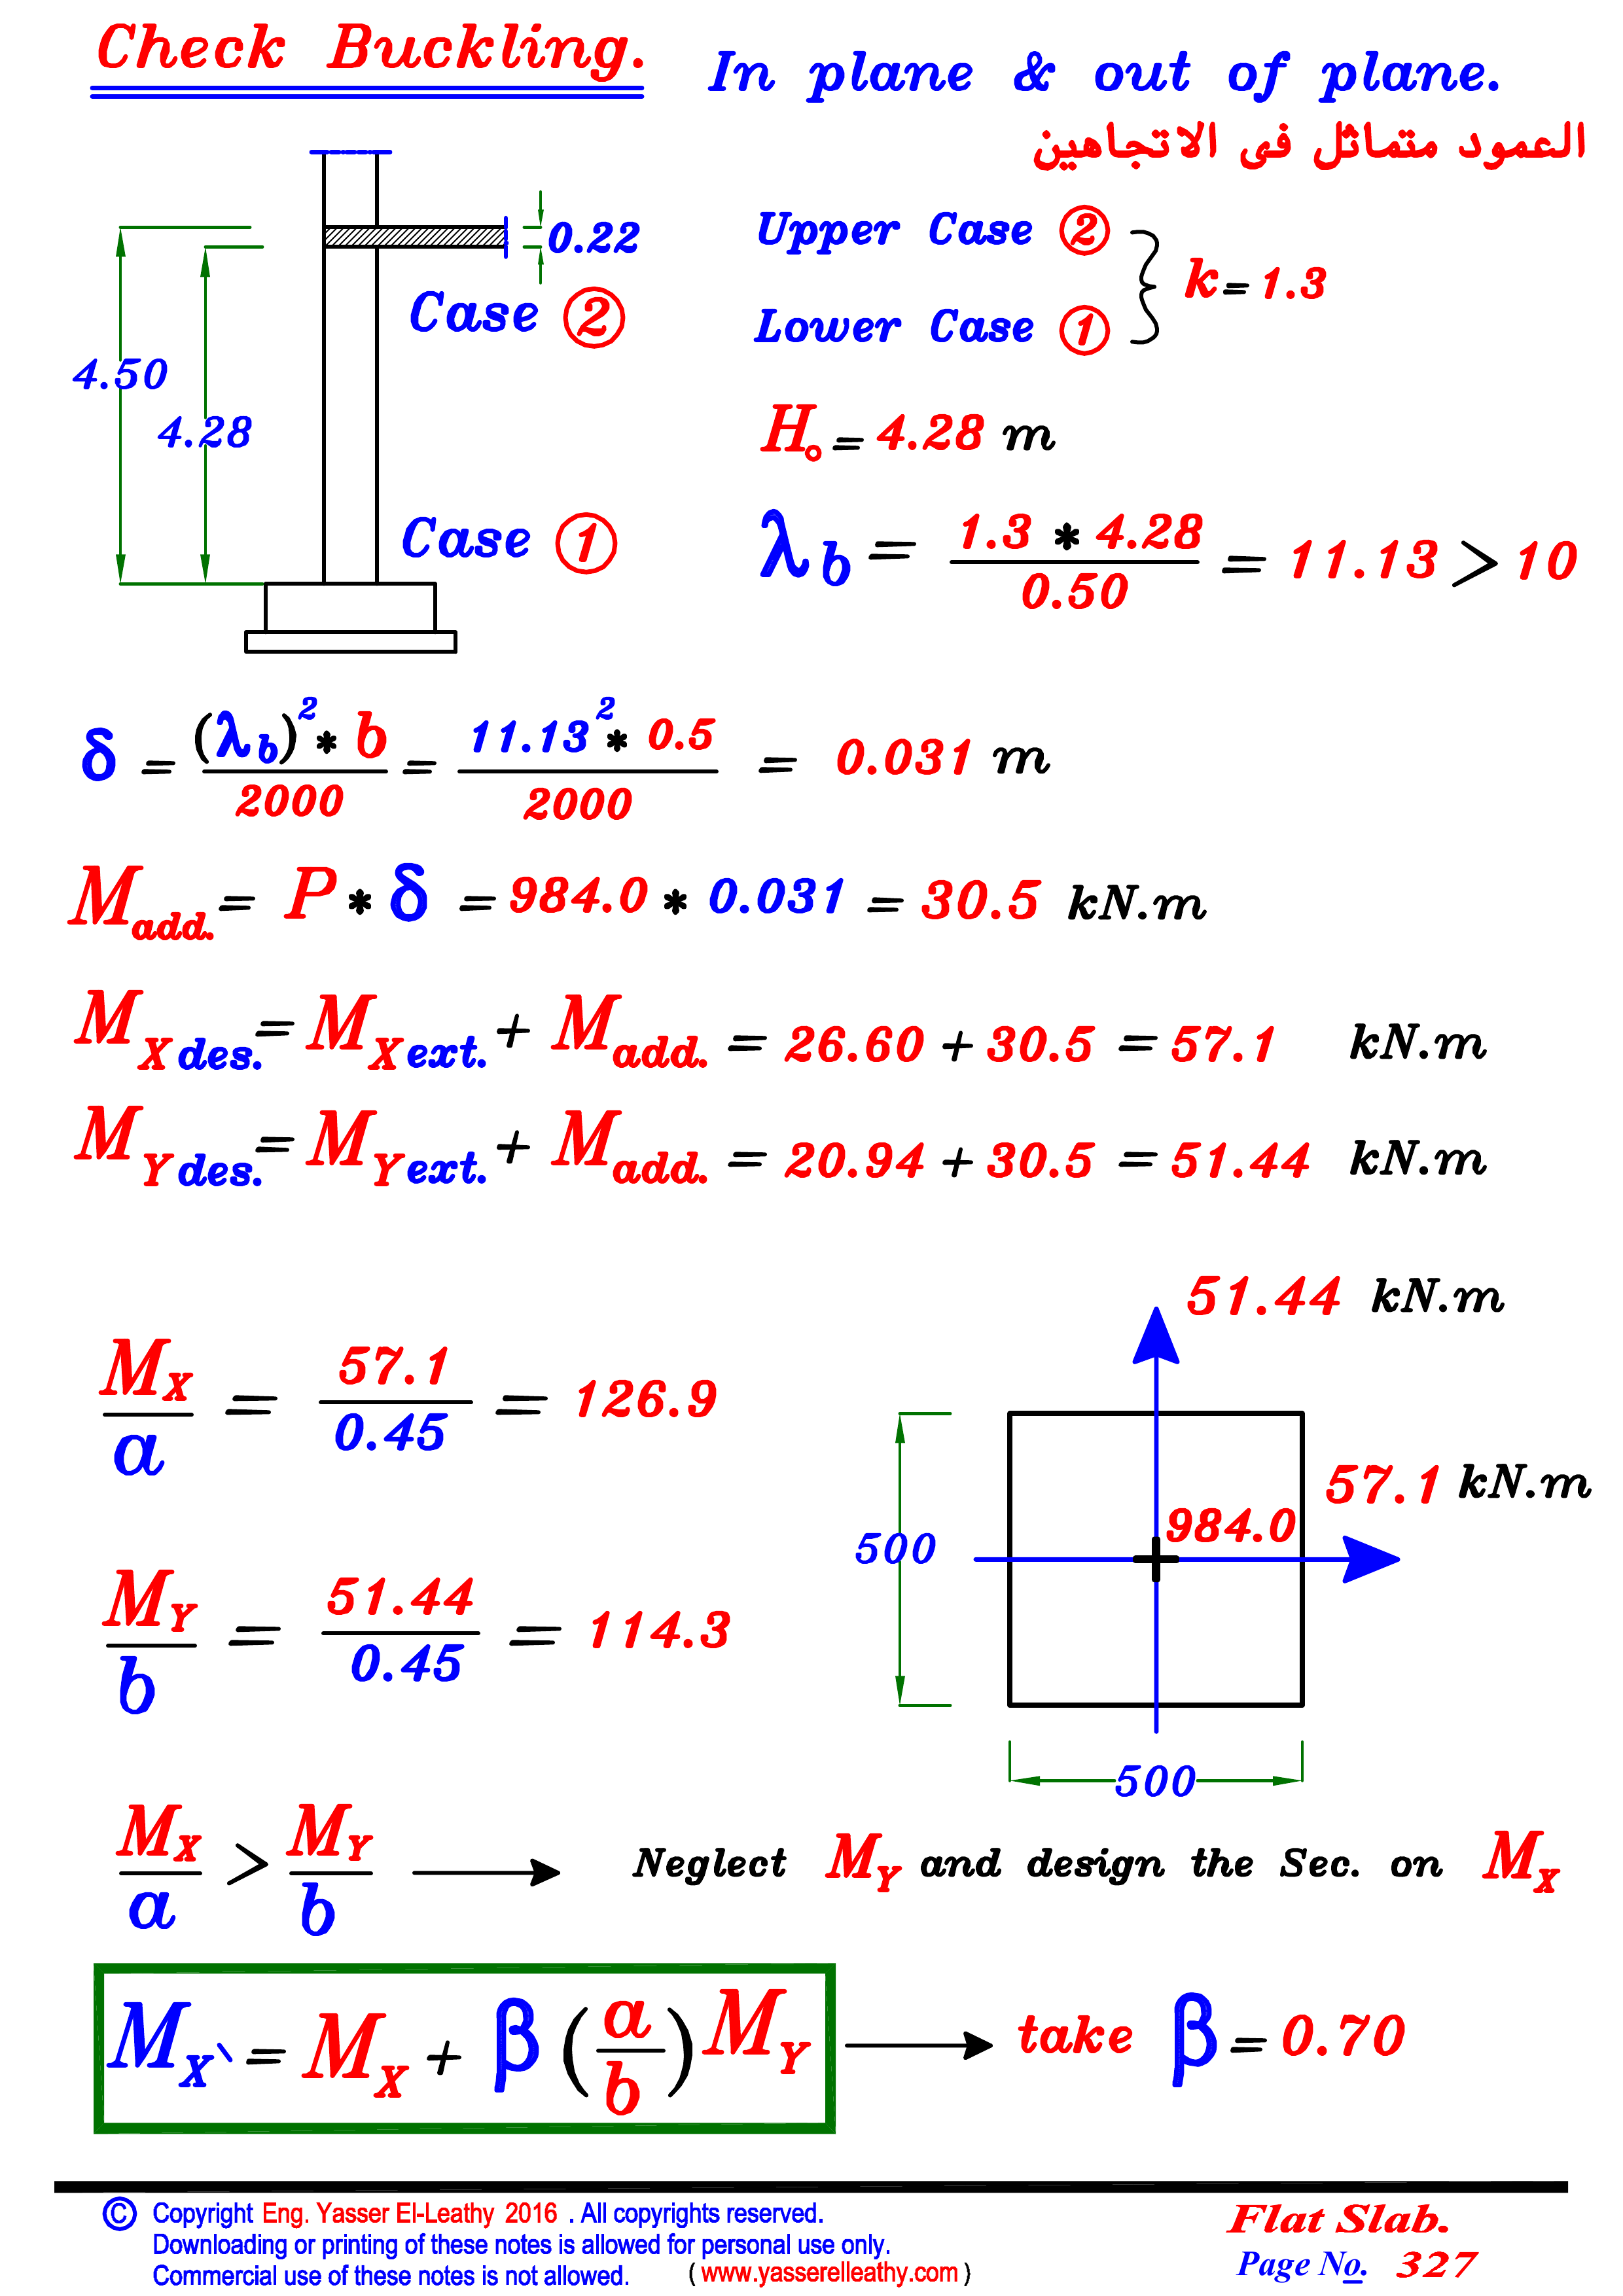 Check Buckling. In plane & out of plane.
العمود متماثل فى الاتجاهين
0.22
Case ②
4.50
4.28
Case ①
Upper Case ②
Lower Case ①
k = 1.3
H₀ = 4.28 m
λb = 1.3 * 4.28 / 0.50 = 11.13 > 10
δ = (λb)² * b / 2000 = 11.13² * 0.5 / 2000 = 0.031 m
Madd. = P * δ = 984.0 * 0.031 = 30.5 kN.m
MX des. = MX ext. + Madd. = 26.60 + 30.5 = 57.1 kN.m
MY des. = MY ext. + Madd. = 20.94 + 30.5 = 51.44 kN.m
MX / a = 57.1 / 0.45 = 126.9
MY / b = 51.44 / 0.45 = 114.3
51.44 kN.m
57.1 kN.m
984.0
500
500
MX / a > MY / b Neglect MY and design the Sec. on MX
MX\ = MX + β (a / b) MY take β = 0.70
© Copyright Eng. Yasser El-Leathy 2016 . All copyrights reserved.
Downloading or printing of these notes is allowed for personal use only.
Commercial use of these notes is not allowed. ( www.yasserelleathy.com )
Flat Slab.
Page No. 327